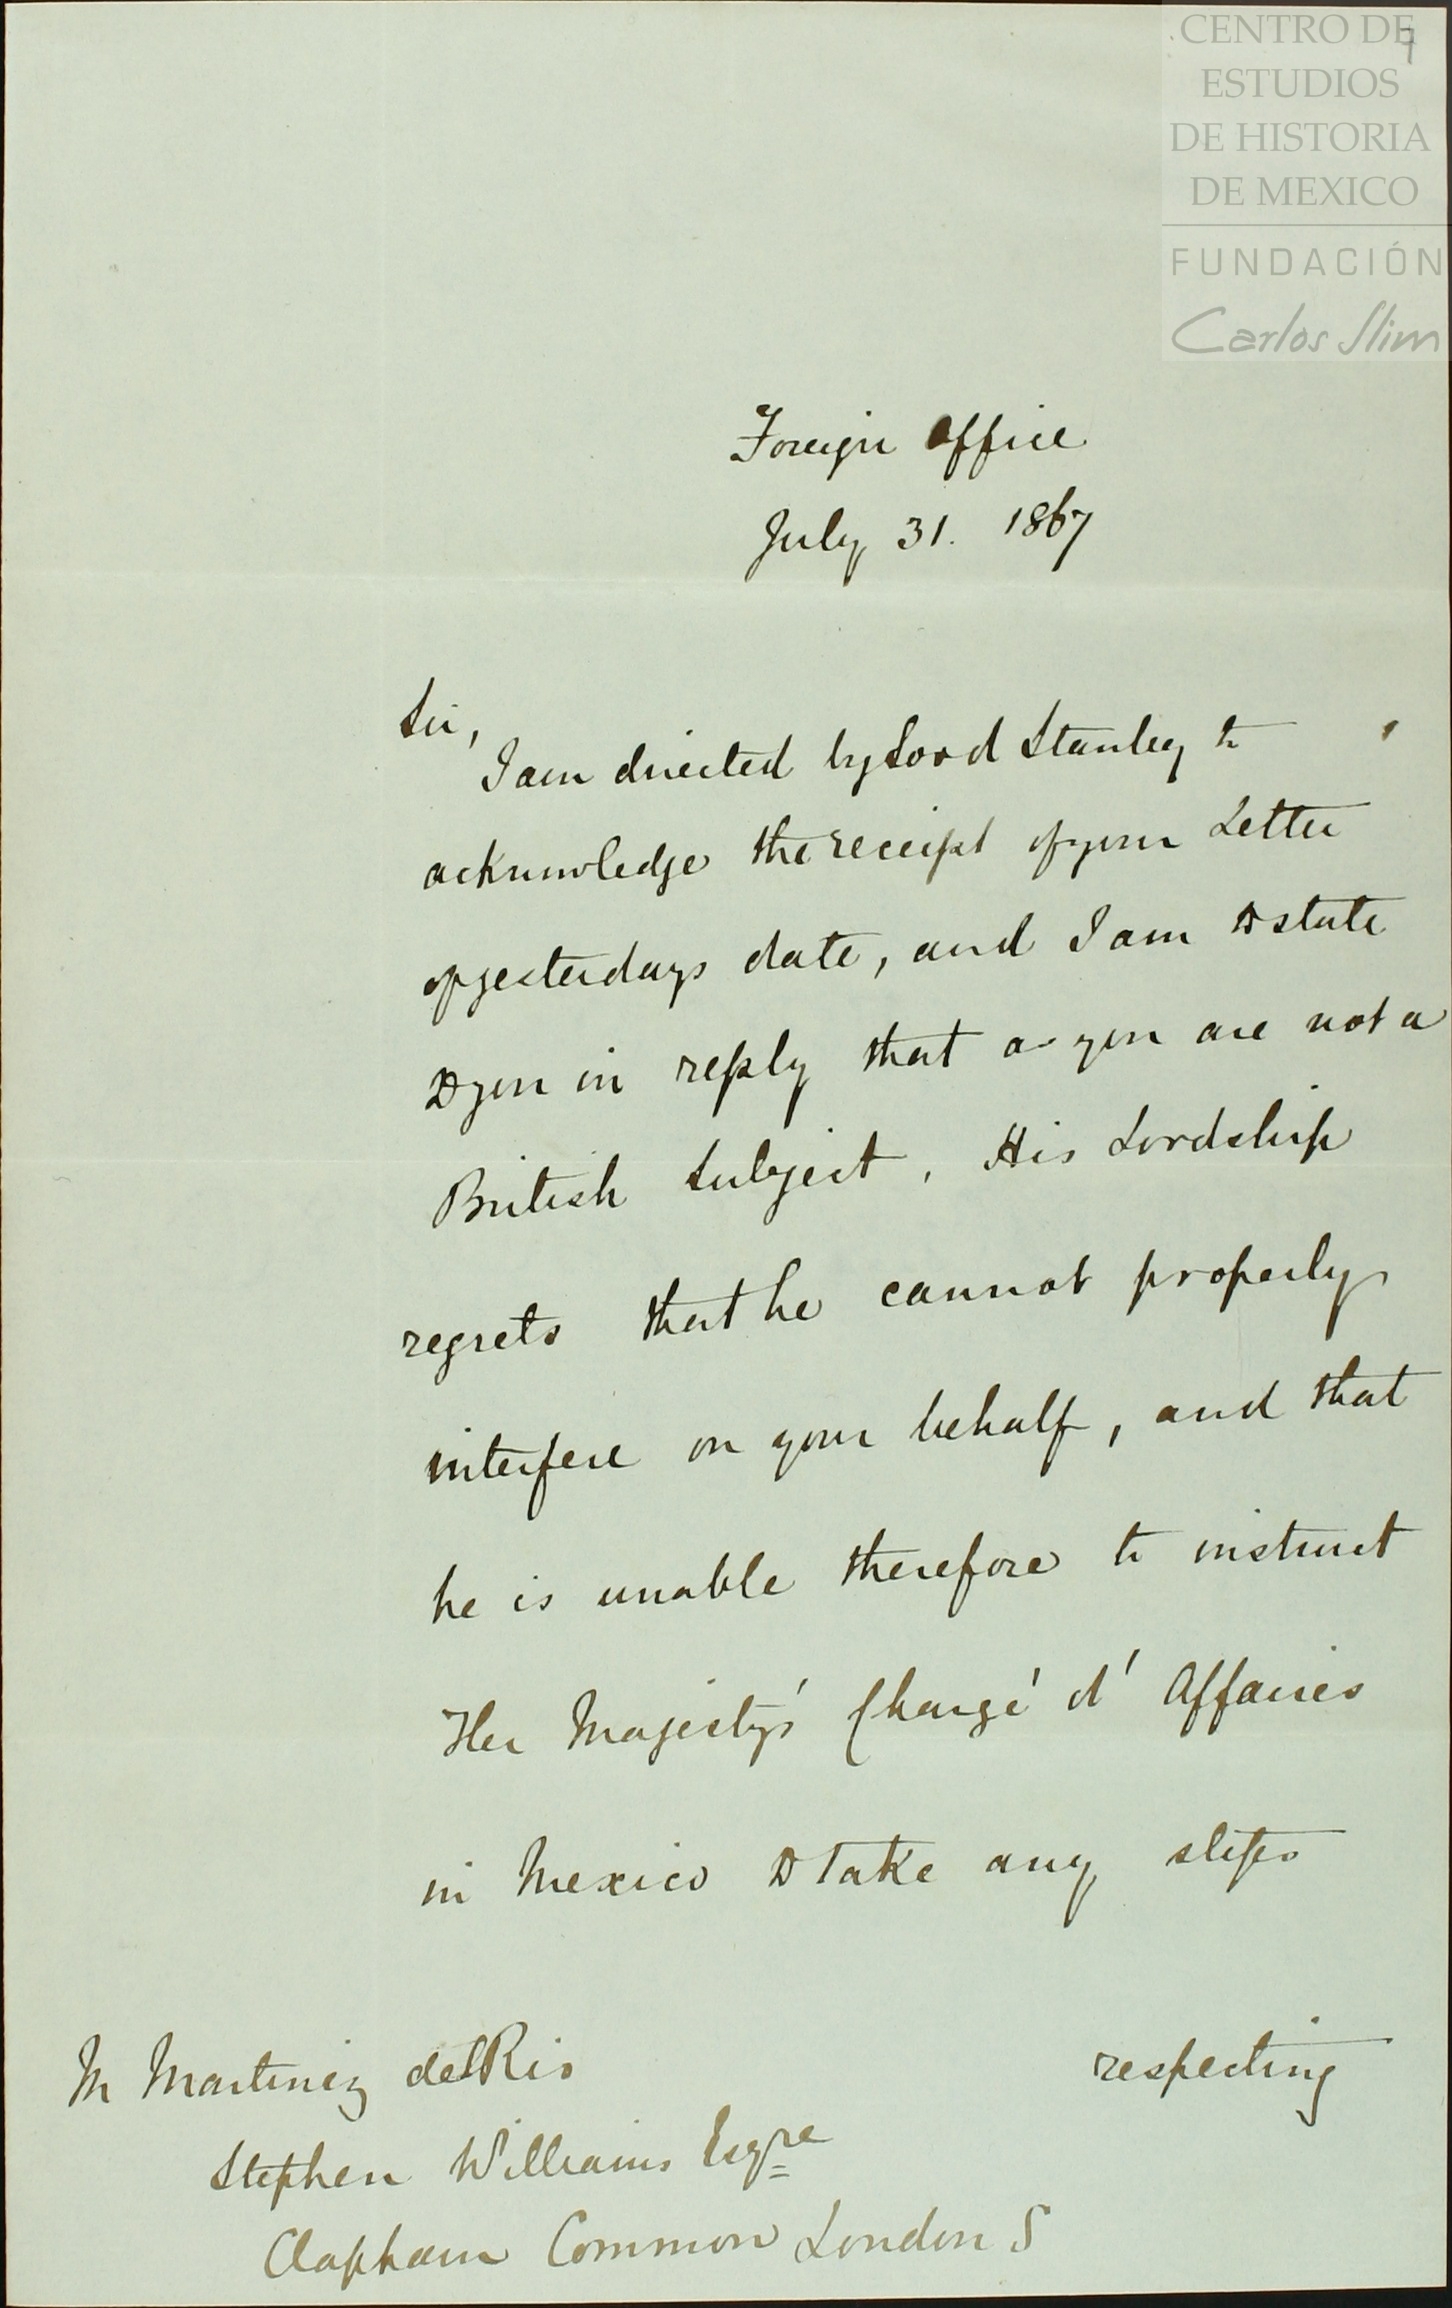 CENTRO DE
ESTUDIOS
DE HISTORIA
DE MEXICO
FUNDACIÓN
Carlos Slim
Foreign Office
July 31. 1867
Sir,
I am directed by Lord Stanley to
acknowledge the receipt of your Letter
of yesterdays date, and I am to state
to you in reply that as you are not a
British Subject, His Lordship
regrets that he cannot properly
interfere on your behalf, and that
he is unable therefore to instruct
Her Majesty's Chargé d'Affaires
in Mexico to take any steps
respecting
M Martinez del Rio
Stephen Williams Esqre
Clapham Common London S